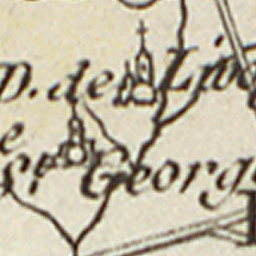 D. de Liv
e
St. Georg